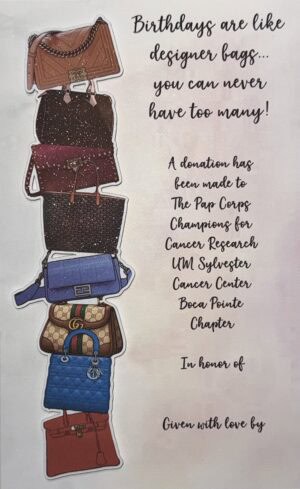 Birthdays are like
designer bags...
you can never
have too many!
A donation has
been made to
The Pap Corps
Champions for
Cancer Research
UM Sylvester
Cancer Center
Boca Pointe
Chapter
In honor of
Given with love by